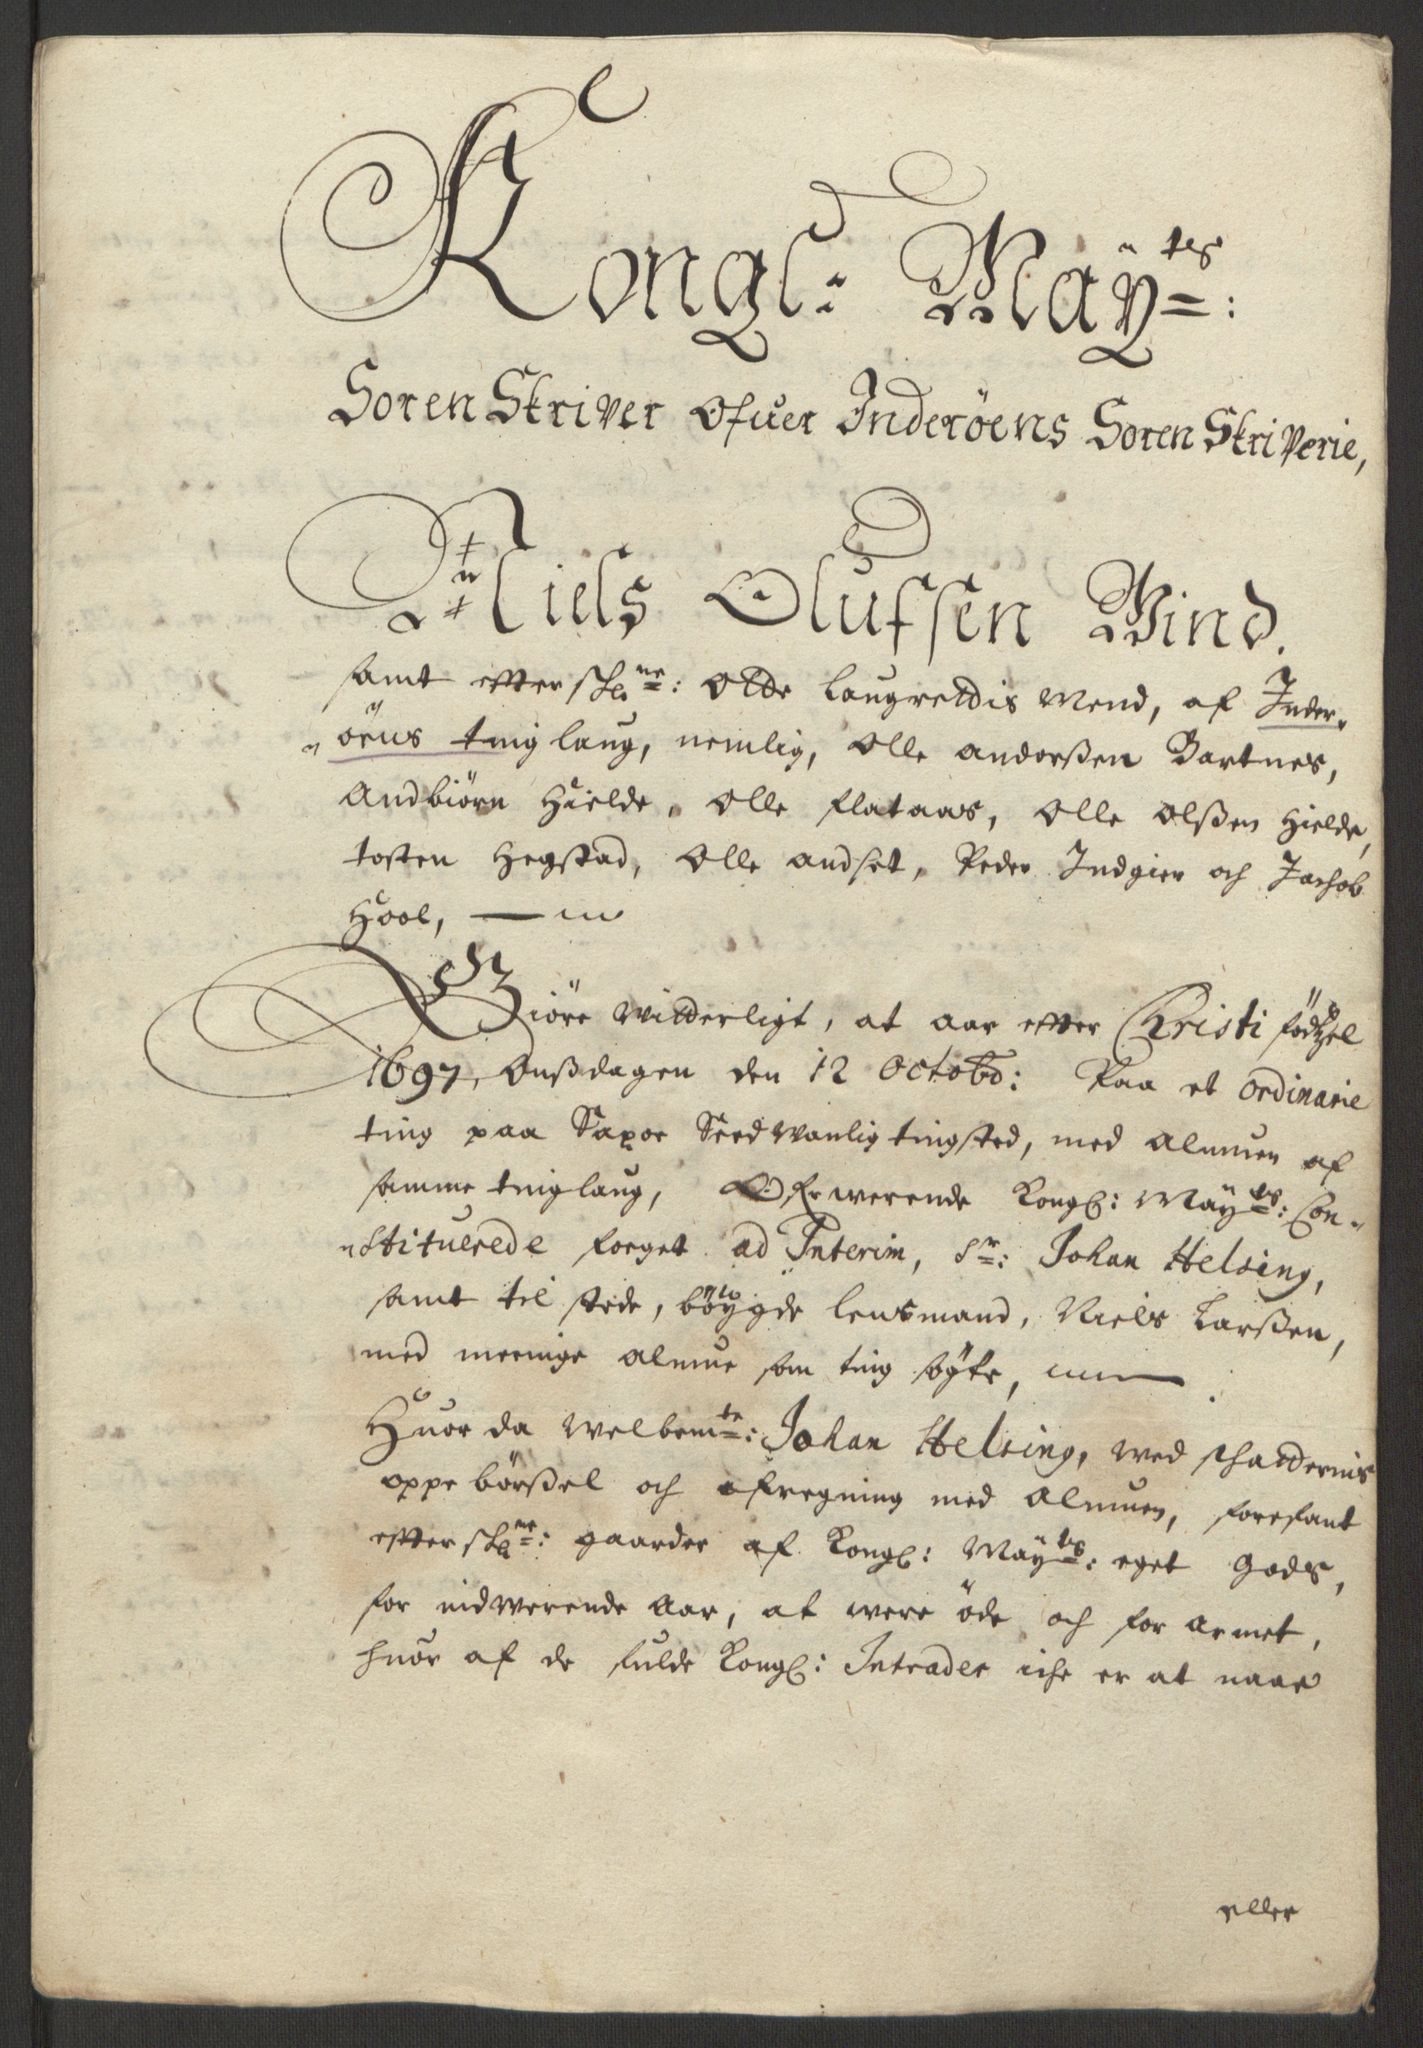 Kongl: Maÿ<sup>tes</sup>:
Soren Skriver Ofuer Inderöens Soren Skriverie,
Niels Olufsen Wind.
samt effterskl<sup>ne</sup>: Otte Laugrettis Mend, af Inder-
öens tinglaug, nemlig, Olle anderßen Bartnes,
Andbiörn Hielde, Olle flataas, Olle Olßen Hielde,
tosten Hegstad, Olle andset, Peder Indgier och Jachob
Hool,
Giöre Witterligt, at aar effter Christi födtzel
1697, Onßdagen den 12 Octobr: Paa et ordinarie
ting paa Saxoe Sædwanlig tingsted, med Almuen af
samme tinglaug, Ofwerwerende Kongl: Maÿ<sup>ts</sup>: Con-
stituerede foeget ad Interim, S<sup>r</sup>: Johan Helsing,
samt til stede, böygde lensmand, Niels Larßen,
med meenige almue som ting sögte,
Huor da welbem<sup>te</sup>: Johan Helsing, wed schatternis
oppebörßel och afregning med Almuen, forefant
effterskl<sup>ne</sup>: gaarder af Kongl: Maÿ<sup>ts</sup>: eget Gods,
for nidwerende Aar, at were öde och for armet,
huor af de fulde Kongl: Intrader iche er at naae
eller